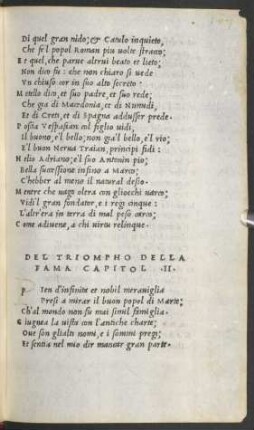 Di quel gran nido; & Catulo inquieto,
Che fe'l popol Roman piu volte strano;
E t quel, che parve altrui beato et lieto;
Non dico fu: che non chiaro si vede
Un chiuso cor in suo alto secreto:
M etello dico, et suo padre, et suo rede;
Che gia di Macedonia, et di Numidi,
Et di Creti, et di Spagna addusser prede.
P oscia Vespasian col figlio vidi,
Il buono, e'l bello; non gia'l bello, e'l rio;
E'l buon Nerva Traian, principi fidi:
H elio Adriano; e'l suo Antonin pio;
Bella successione infino a Marco;
C'hebber al meno il natural desio.
M entre che vago oltra con gliocchi varco;
Vidi'l gran fondator, e i regi cinque:
L'altr'era in terra di mal peso carco;
C ome adiuene, a chi virtu relinque.
DEL TRIOMPHO DELLA
FAMA CAPITOL .II.
P Ien d'infinita et nobil meraviglia
Presi a mirar il buon popol di Marte;
Ch'al mondo non fu mai simil famiglia.
G iugnea la vista con l'antiche charte;
Ove son glialti nomi, e i sommi pregi;
Et sentia nel mio dir mancar gran parte.